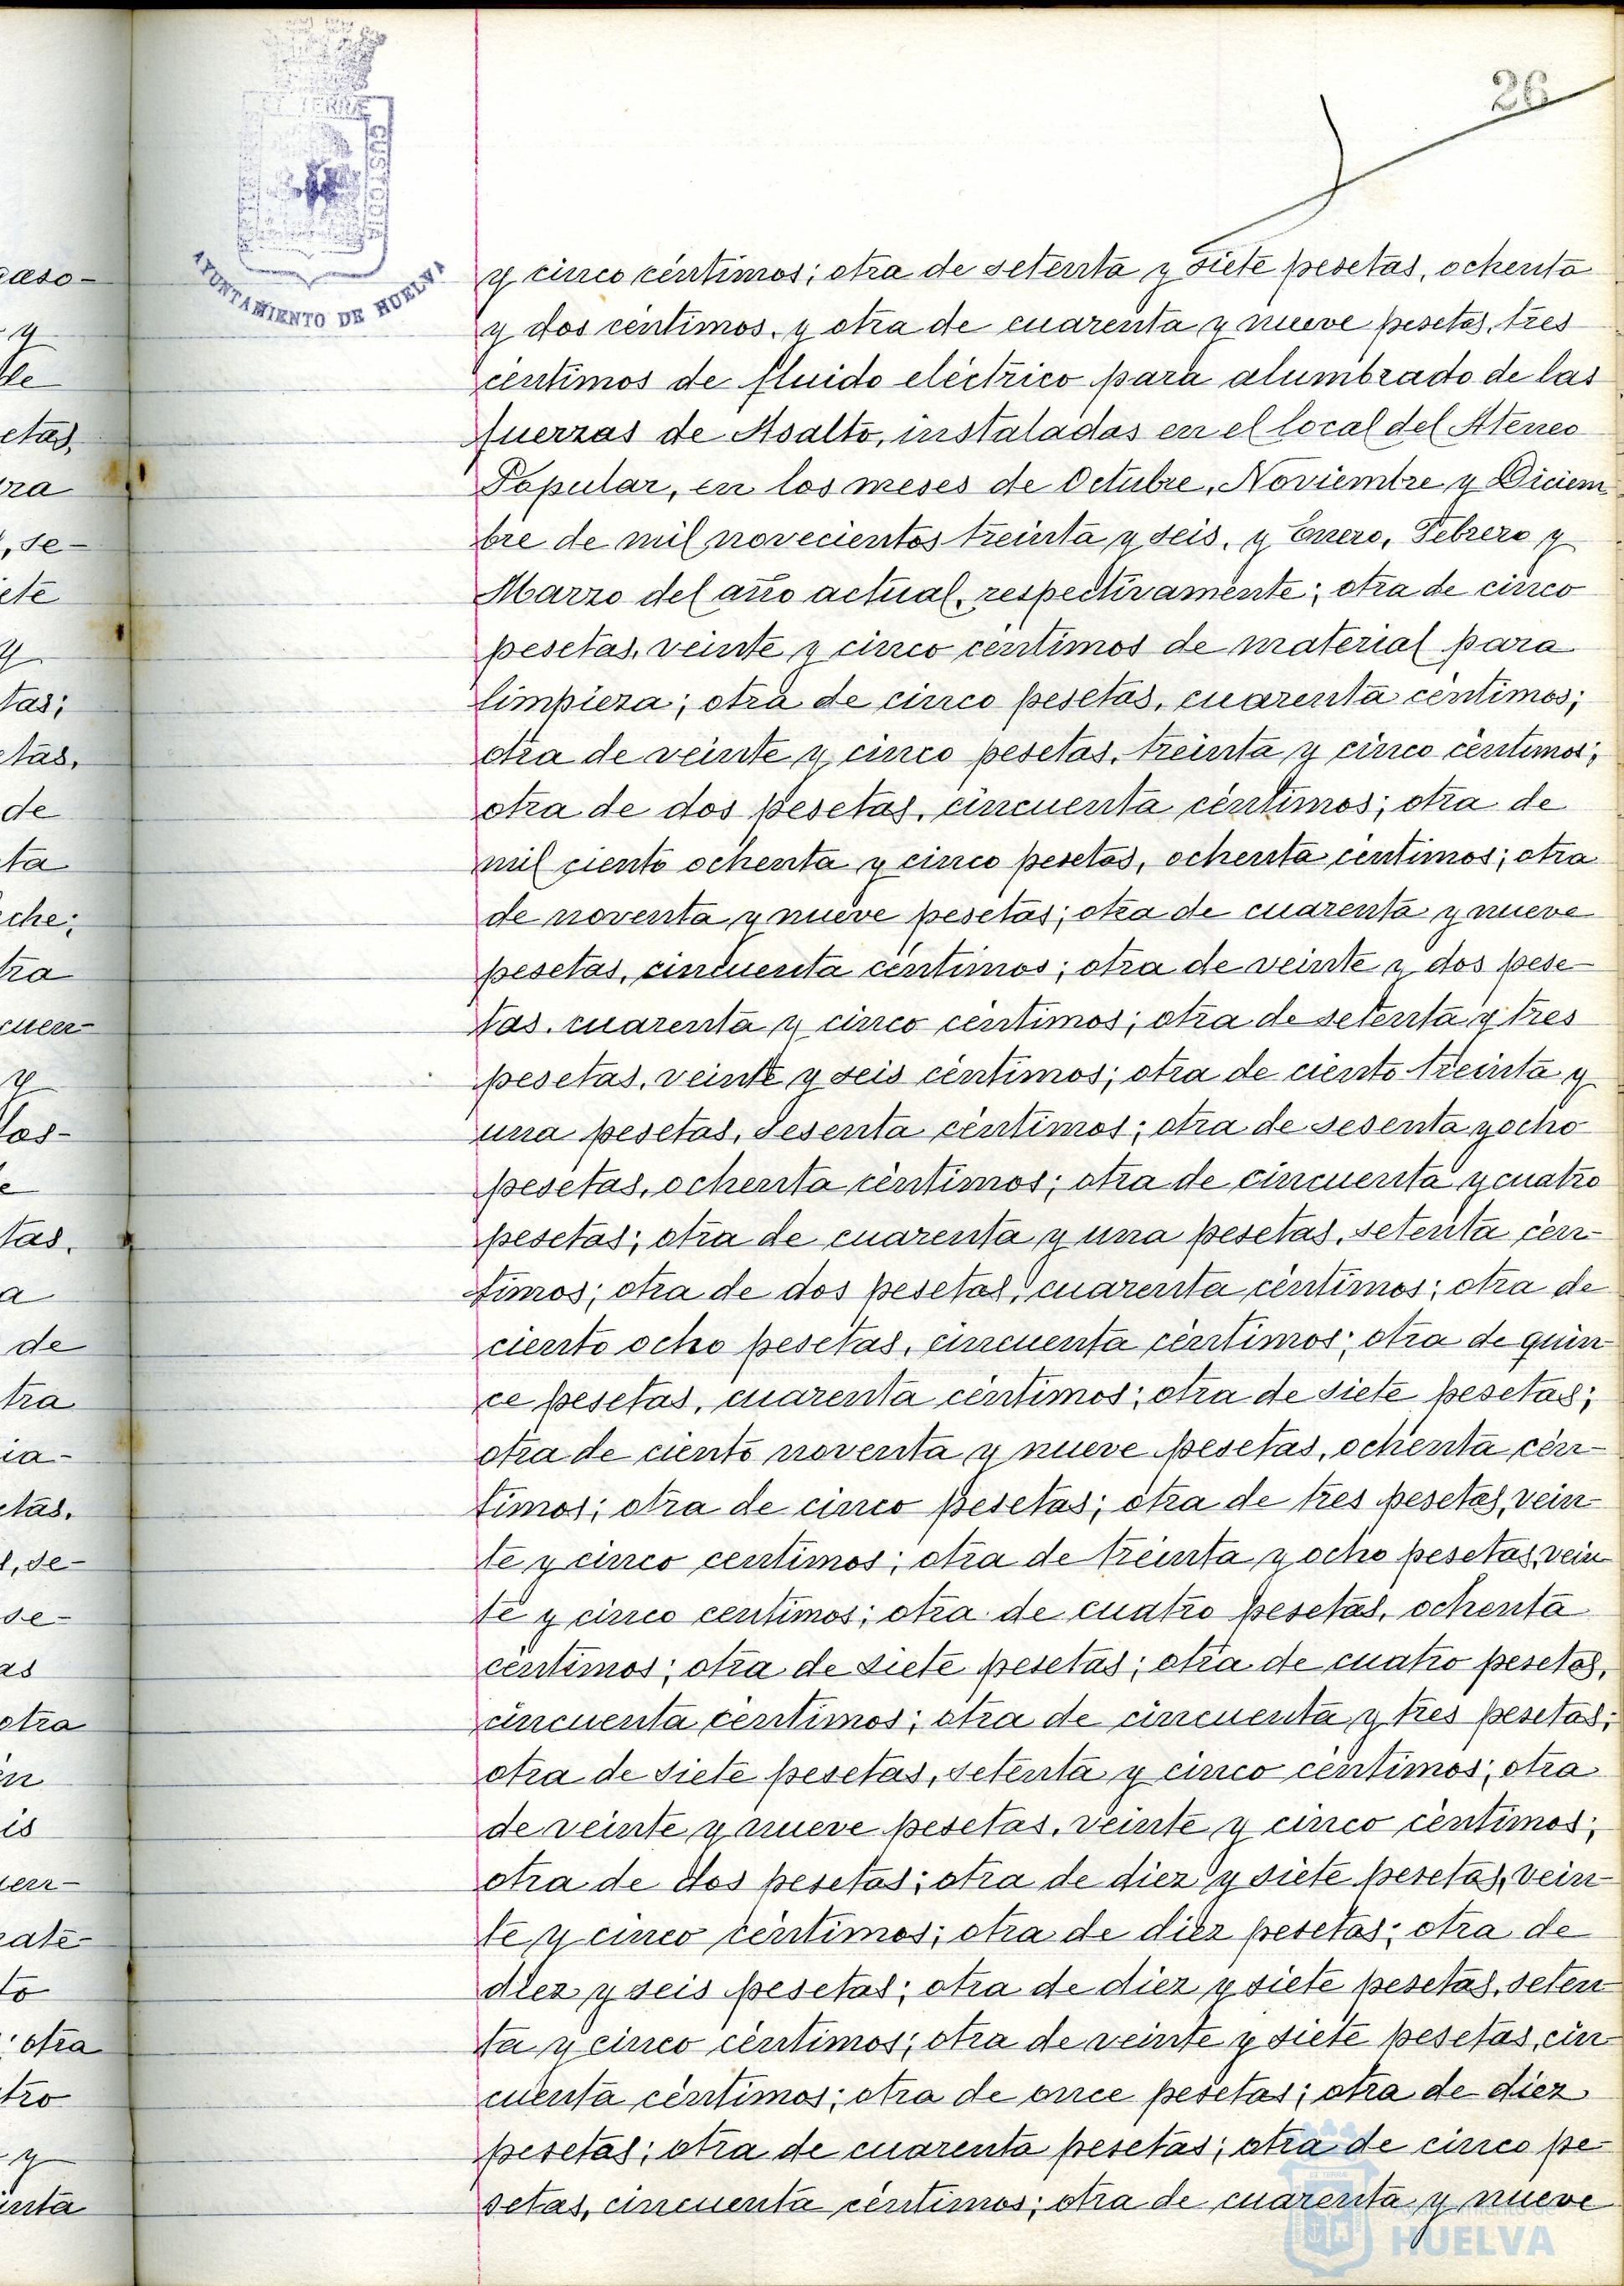 26
ET TERRÆ
CUSTODIA
AYUNTAMIENTO DE HUELVA
y cinco céntimos; otra de setenta y siete pesetas, ochenta
y dos céntimos, y otra de cuarenta y nueve pesetas, tres
céntimos de fluido eléctrico para alumbrado de las
fuerzas de Asalto, instaladas en el local del Ateneo
Popular, en los meses de Octubre, Noviembre y Diciem
bre de mil novecientos treinta y seis, y Enero, Febrero y
Marzo del año actual, respectivamente; otra de cinco
pesetas, veinte y cinco céntimos de material para
limpieza; otra de cinco pesetas, cuarenta céntimos;
otra de veinte y cinco pesetas, treinta y cinco céntimos;
otra de dos pesetas, cincuenta céntimos; otra de
mil ciento ochenta y cinco pesetas, ochenta céntimos; otra
de noventa y nueve pesetas; otra de cuarenta y nueve
pesetas, cincuenta céntimos; otra de veinte y dos pese-
tas, cuarenta y cinco céntimos; otra de setenta y tres
pesetas, veinte y seis céntimos; otra de ciento treinta y
una pesetas, sesenta céntimos; otra de sesenta y ocho
pesetas, ochenta céntimos; otra de cincuenta y cuatro
pesetas; otra de cuarenta y una pesetas, setenta cén-
timos; otra de dos pesetas, cuarenta céntimos; otra de
ciento ocho pesetas, cincuenta céntimos; otra de quin-
ce pesetas, cuarenta céntimos; otra de siete pesetas;
otra de ciento noventa y nueve pesetas, ochenta cén-
timos; otra de cinco pesetas; otra de tres pesetas, vein-
te y cinco centimos; otra de treinta y ocho pesetas, vein
te y cinco centimos; otra de cuatro pesetas, ochenta
céntimos; otra de siete pesetas; otra de cuatro pesetas,
cincuenta céntimos; otra de cincuenta y tres pesetas;
otra de siete pesetas, setenta y cinco céntimos; otra
de veinte y nueve pesetas, veinte y cinco céntimos;
otra de dos pesetas; otra de diez y siete pesetas, vein-
te y cinco céntimos; otra de diez pesetas; otra de
diez y seis pesetas; otra de diez y siete pesetas, seten
ta y cinco céntimos; otra de veinte y siete pesetas, cin
cuenta céntimos; otra de once pesetas; otra de diez
pesetas; otra de cuarenta pesetas; otra de cinco pe-
setas, cincuenta céntimos; otra de cuarenta y nueve
HUELVA